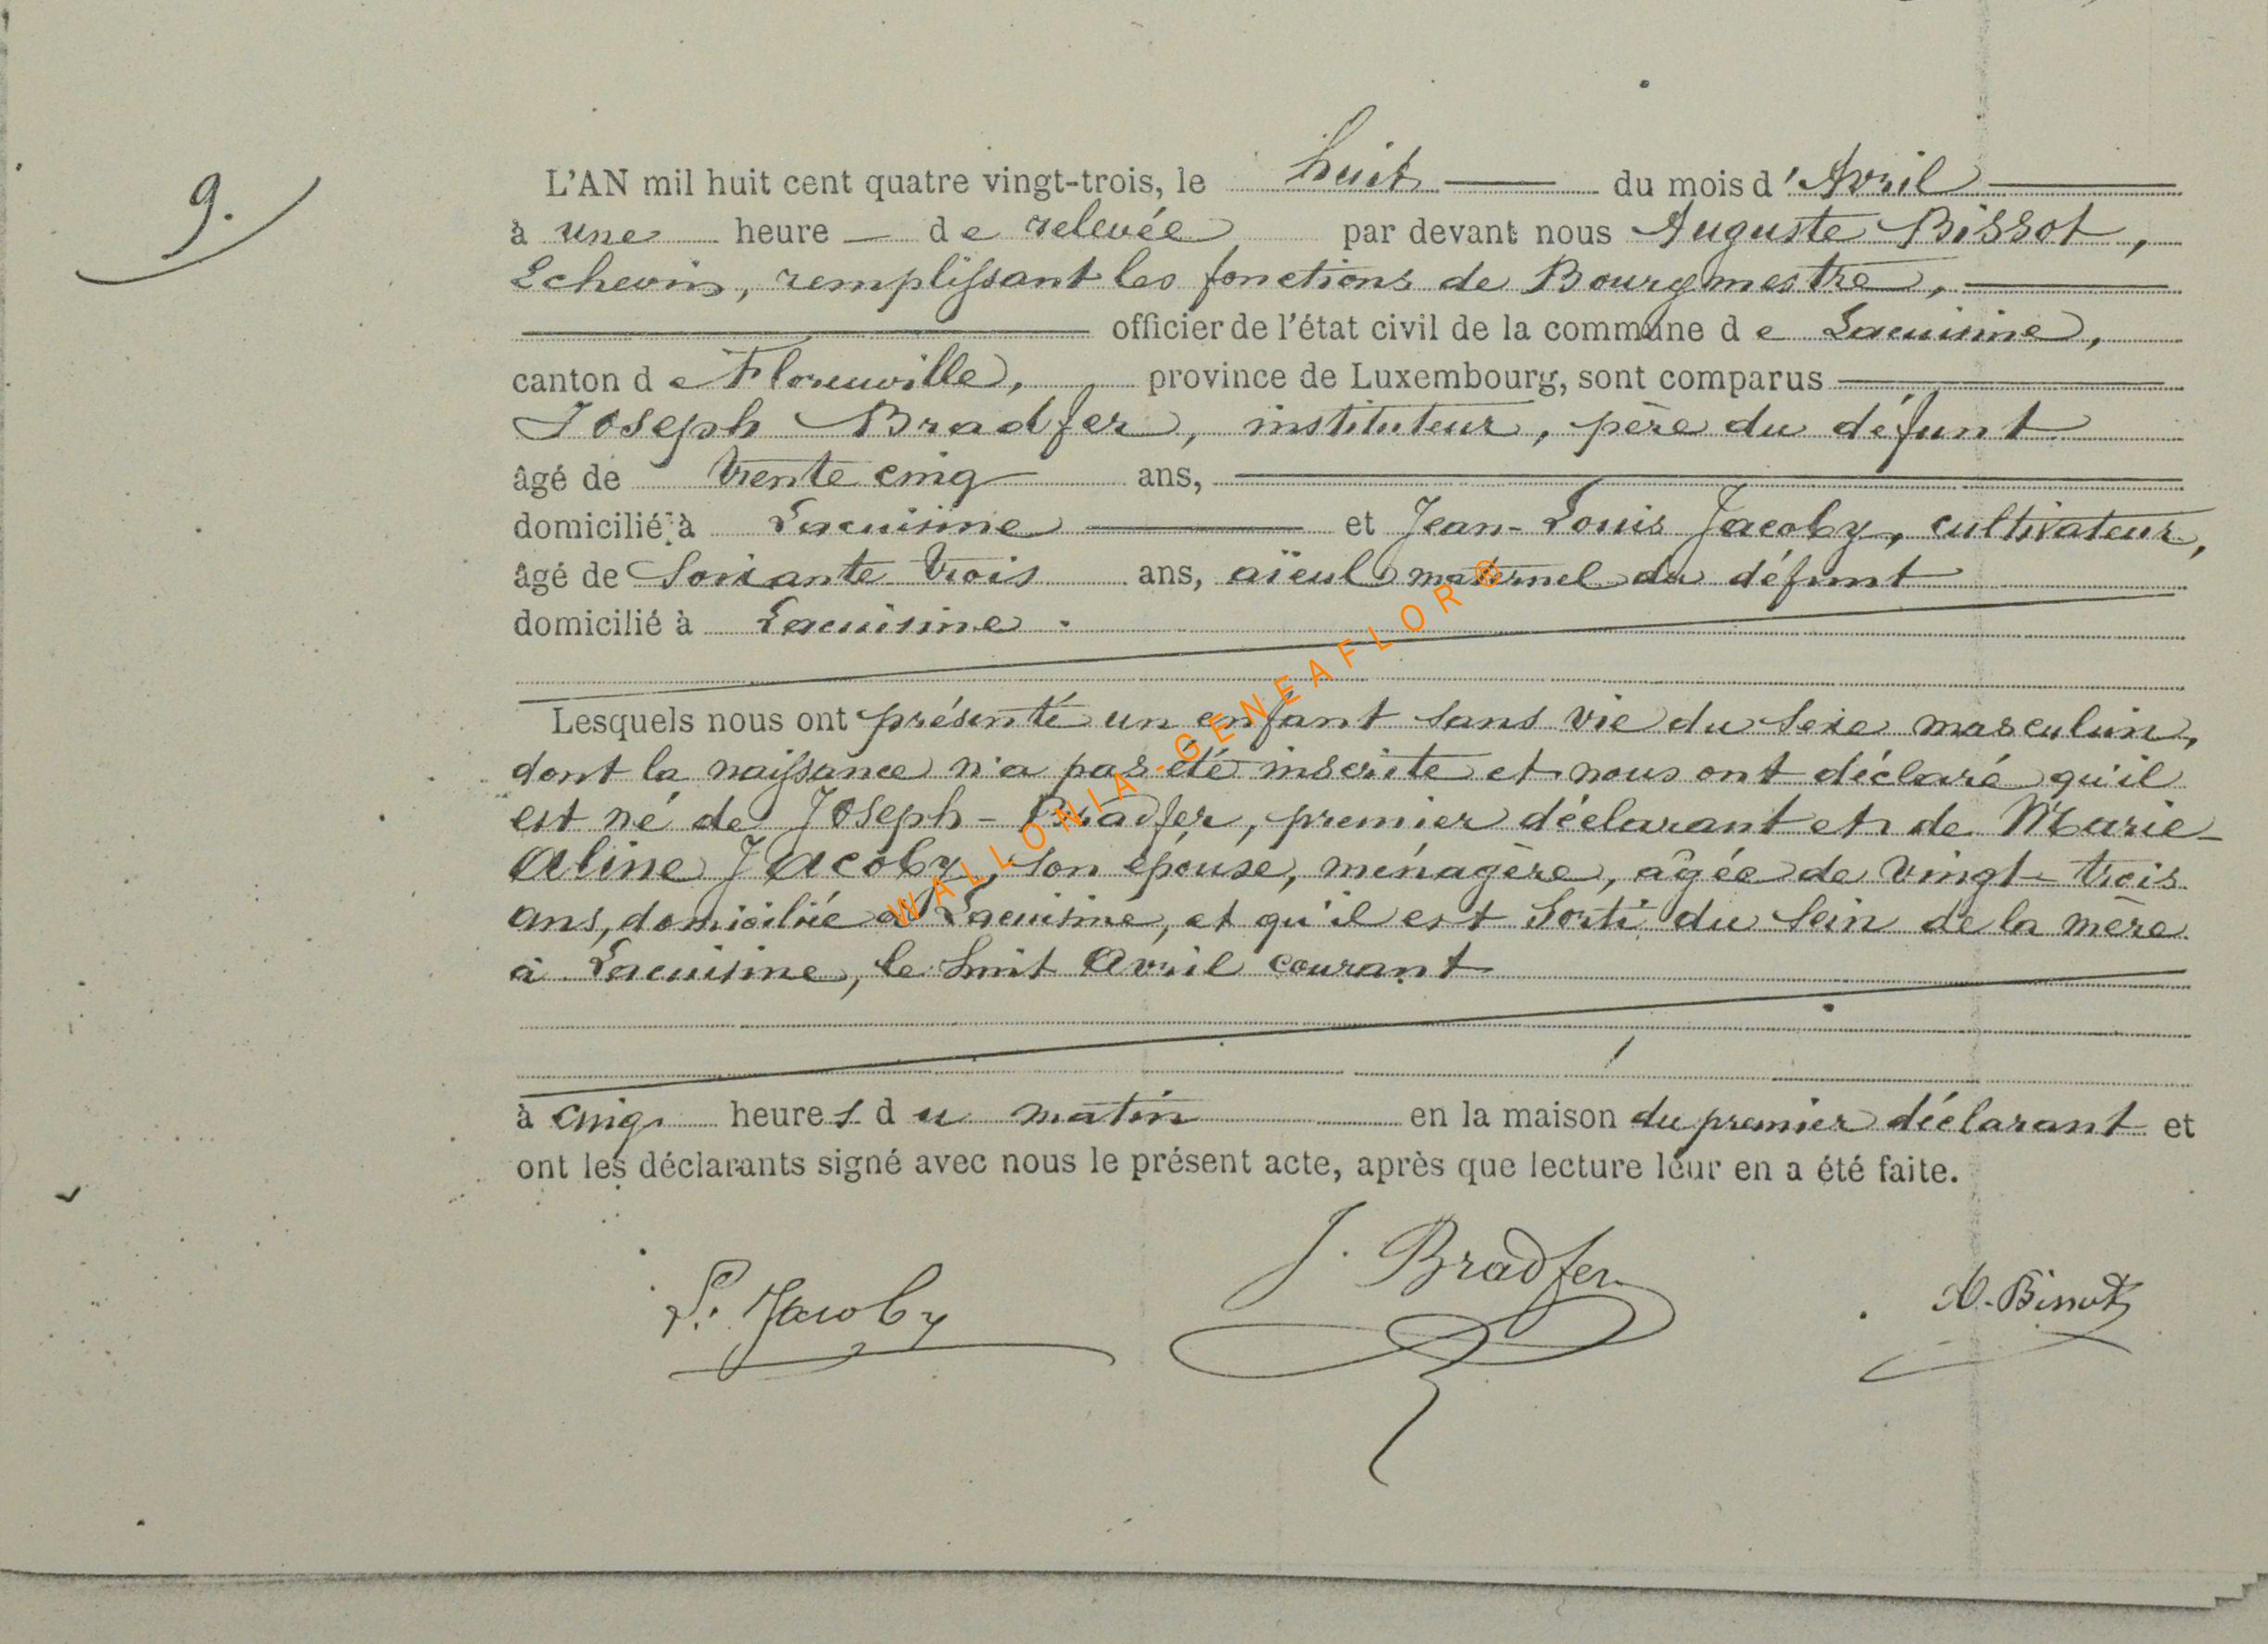 9.
L'AN mil huit cent quatre vingt-trois, le huit du mois d'Avril
à une heure de relevée par devant nous Auguste Bissot,
Echevin, remplissant les fonctions de Bourgmestre,
officier de l'état civil de la commune de Lacuisine,
canton de Florenville, province de Luxembourg, sont comparus
Joseph Bradfer, instituteur, père du défunt
âgé de trente cinq ans,
domicilié à Lacuisine et Jean-Louis Jacoby, cultivateur,
âgé de soixante trois ans, aïeul maternel du défunt
domicilié à Lacuisine.
Lesquels nous ont présenté un enfant sans vie du sexe masculin,
dont la naissance n'a pas été inscrite et nous ont déclaré qu'il
est né de Joseph-Bradfer, premier déclarant et de Marie-
Aline Jacoby, son épouse, ménagère, âgée de vingt-trois
ans, domiciliée à Lacuisine, et qu'il est sorti du sein de la mère
à Lacuisine, le huit Avril courant
à cinq heures du matin en la maison du premier déclarant et
ont les déclarants signé avec nous le présent acte, après que lecture leur en a été faite.
L. Jacoby J. Bradfer A. Bissot
WALLONIA-GENEAFLOR©